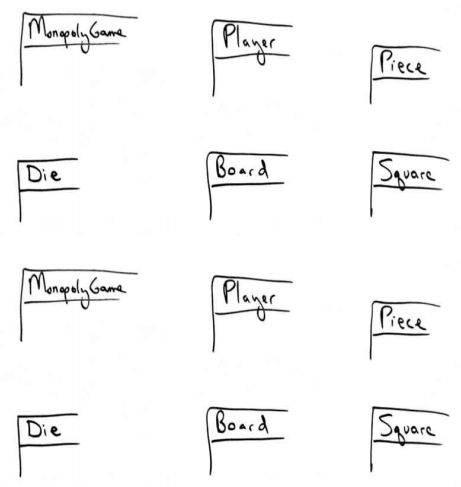 MonopolyGame
Player
Piece
Die
Board
Square
MonopolyGame
Player
Piece
Die
Board
Square